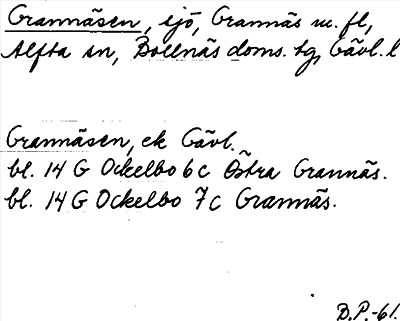 Grannäsen, sjö, Grannäs m. fl,
Alfta sn, Bollnäs doms. tg, Gävl. l
Grannäsen, ek Gävl.
bl. 14 G Ockelbo 6 c Östra Grannäs.
bl. 14 G Ockelbo 7 c Grannäs.
D.P.-61.